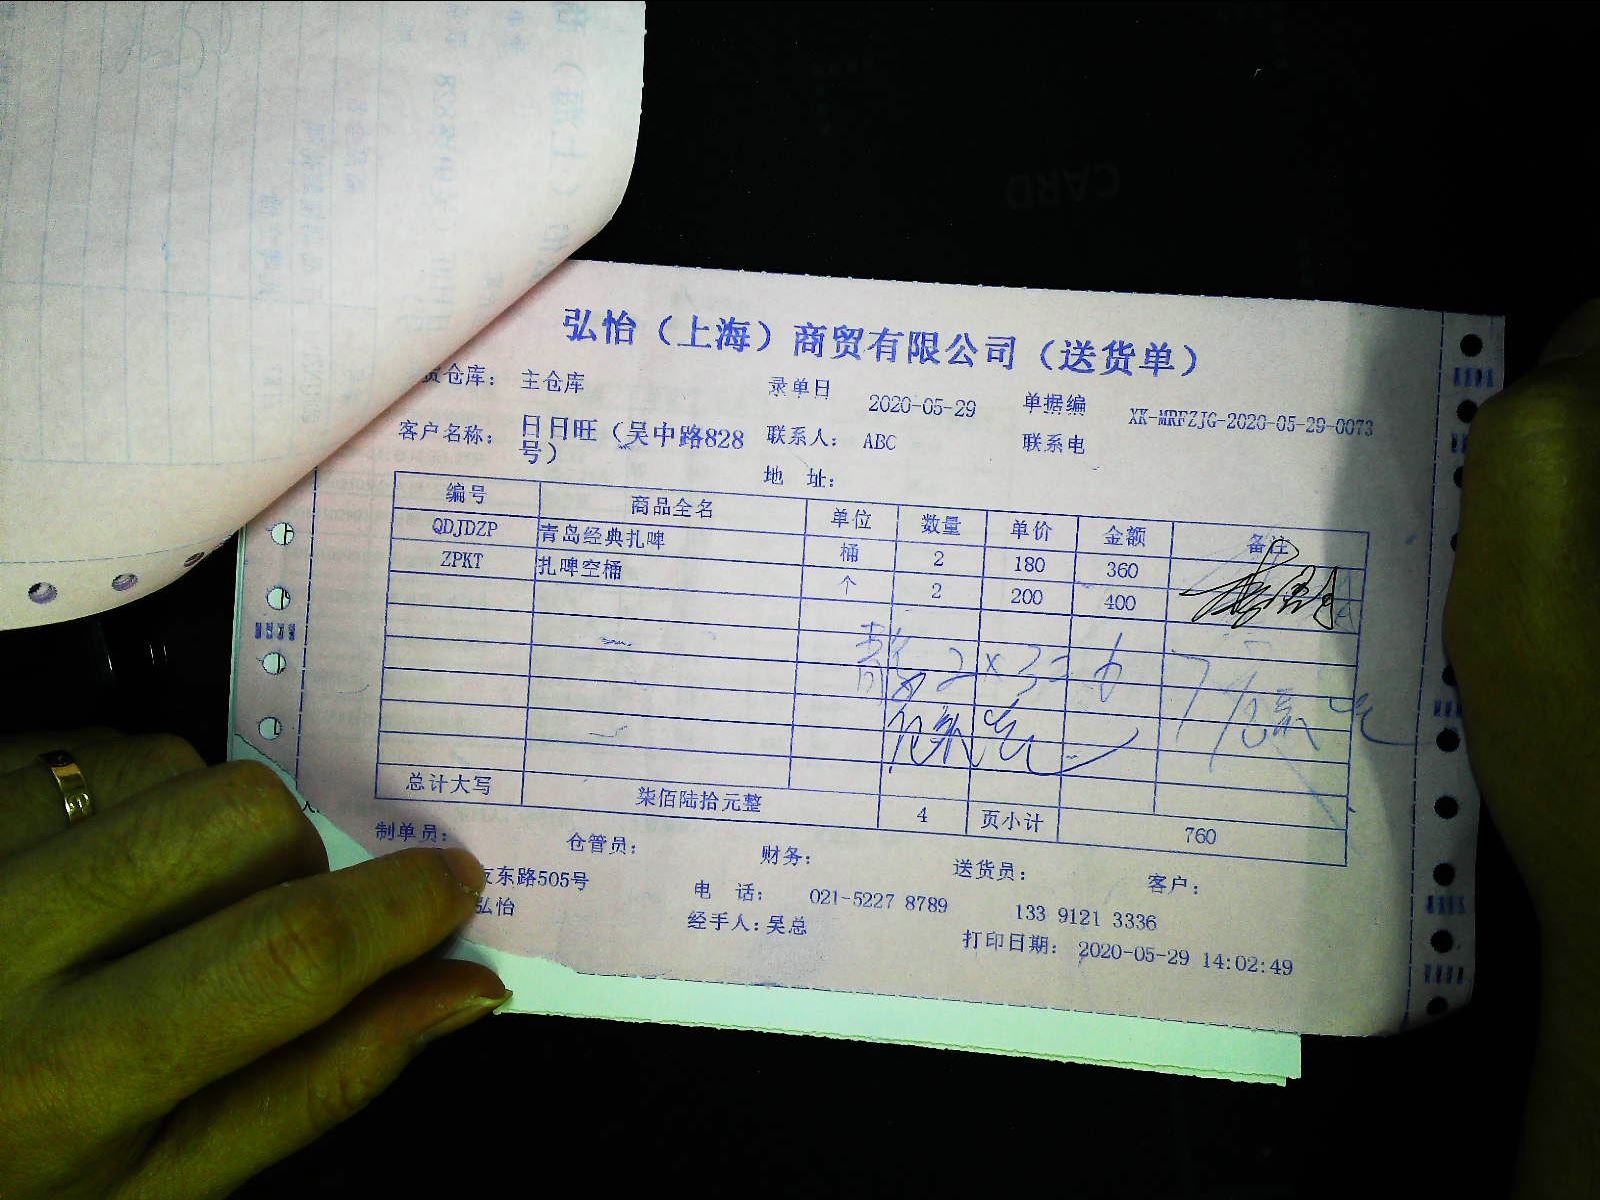 弘怡（上海）商贸有限公司（送货单）
货仓库： 主仓库 录单日 2020-05-29 单据编 XK-MRFZJG-2020-05-29-0073
客户名称： 日日旺（吴中路828号） 联系人： ABC 联系电
地 址：
编号 商品全名 单位 数量 单价 金额 备注
QDJDZP 青岛经典扎啤 桶 2 180 360
ZPKT 扎啤空桶 个 2 200 400
2×3=6
总计大写 柒佰陆拾元整 4 页小计 760
制单员： 仓管员： 财务： 送货员： 客户：
友东路505号 电 话： 021-5227 8789 133 9121 3336
弘怡 经手人：吴总 打印日期： 2020-05-29 14:02:49
CARD